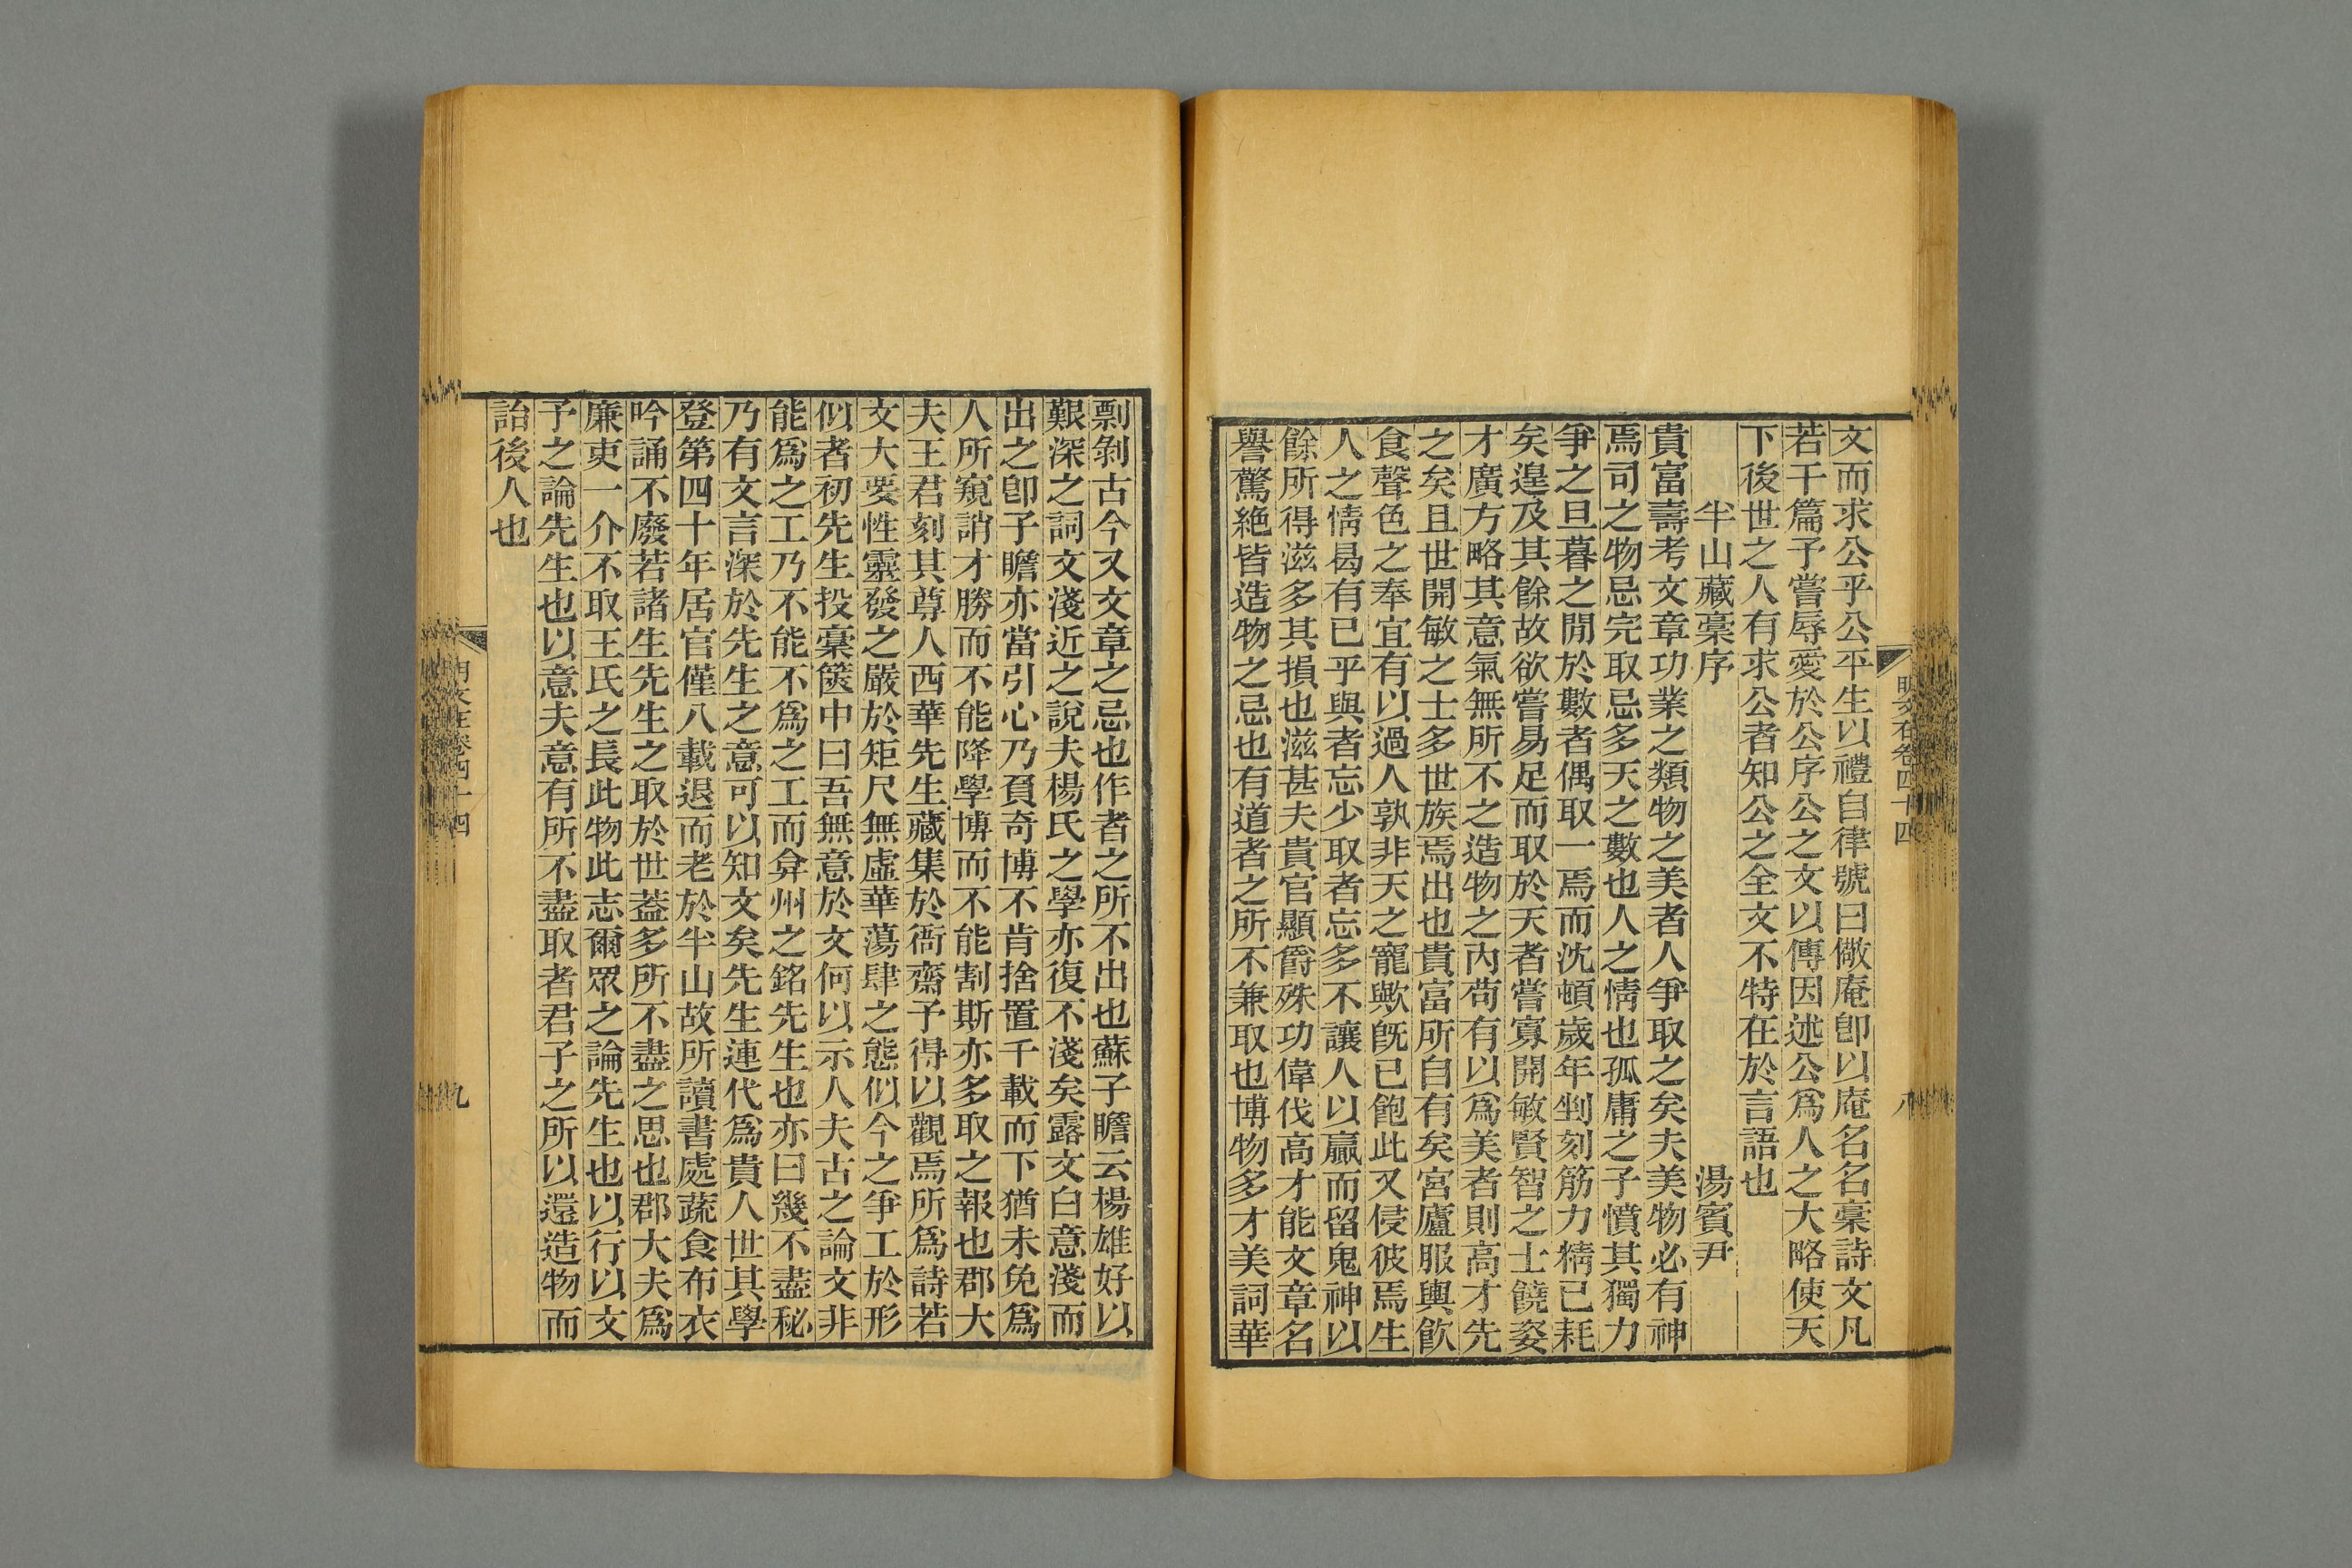 文而求公乎公平生以禮自律號曰儆庵卽以庵名名稾詩文凡
若干篇予嘗辱愛於公序公之文以傳因述公爲人之大略使天
下後世之人有求公者知公之全文不特在於言語也
半山藏稾序
湯賓尹
貴富壽考文章功業之類物之美者人爭取之矣夫美物必有神
焉司之物忌完取忌多天之數也人之情也孤庸之子憤其獨力
爭之旦暮之閒於數者偶取一焉而沈頓歲年剉刻筋力精已耗
矣遑及其餘故欲嘗易足而取於天者嘗寡開敏賢智之士饒姿
才廣方略其意氣無所不之造物之內苟有以爲美者則高才先
之矣且世開敏之士多世族焉出也貴富所自有矣宮廬服輿飮
食聲色之奉宜有以過人孰非天之寵歟旣已飽此又侵彼焉生
人之情曷有已乎與者忘少取者忘多不讓人以贏而留鬼神以
餘所得滋多其損也滋甚夫貴官顯爵殊功偉伐高才能文章名
譽驚絶皆造物之忌也有道者之所不兼取也博物多才美詞華
明文在卷四十四
八
剽剝古今又文章之忌也作者之所不出也蘇子瞻云楊雄好以
艱深之詞文淺近之說夫楊氏之學亦復不淺矣露文白意淺而
出之卽子瞻亦當引心乃負奇博不肯捨置千載而下猶未免爲
人所窺誚才勝而不能降學博而不能割斯亦多取之報也郡大
夫王君刻其尊人西華先生藏集於衙齋予得以觀焉所爲詩若
文大要性靈發之嚴於矩尺無虛華蕩肆之態似今之爭工於形
似者初先生投稾篋中曰吾無意於文何以示人夫古之論文非
能爲之工乃不能不爲之工而弇州之銘先生也亦曰幾不盡秘
乃有文言深於先生之意可以知文矣先生連代爲貴人世其學
登第四十年居官僅八載退而老於半山故所讀書處蔬食布衣
吟誦不廢若諸生先生之取於世葢多所不盡之思也郡大夫爲
廉吏一介不取王氏之長此物此志爾眾之論先生也以行以文
予之論先生也以意夫意有所不盡取者君子之所以還造物而
詒後人也
明文在卷四十四
九